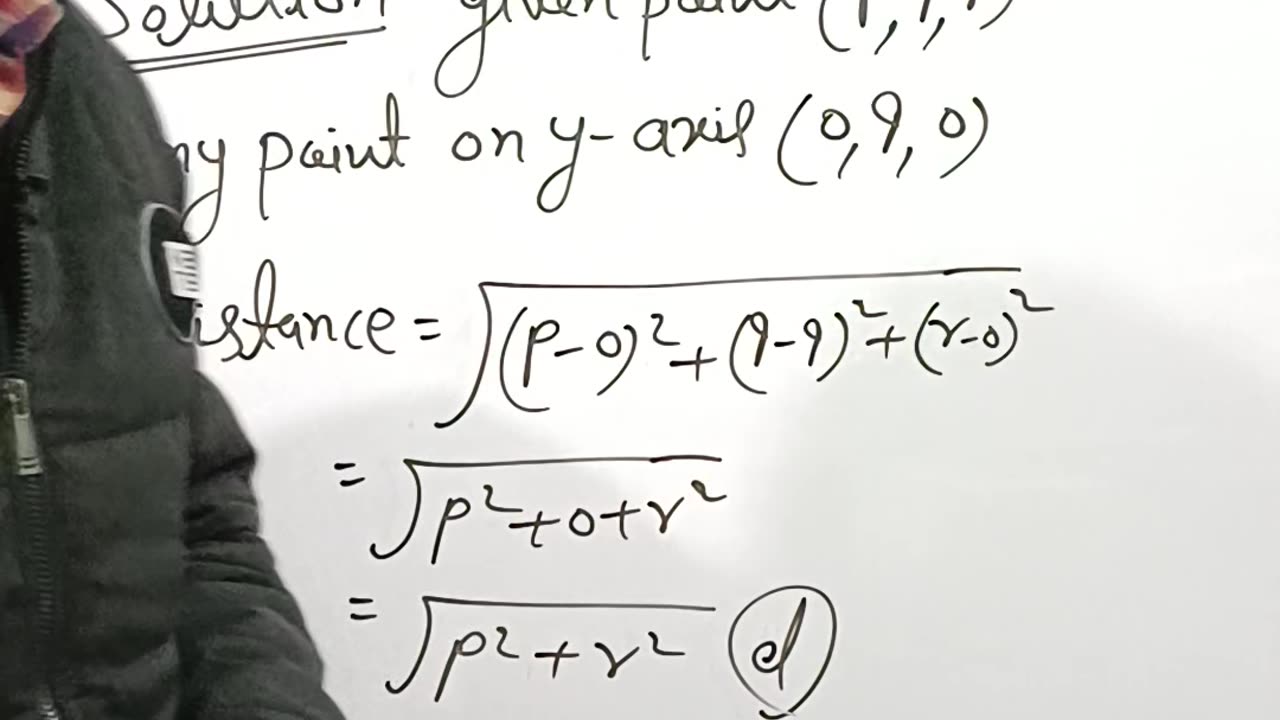 Solution given point (p, q, r)
ny point on y-axis (0, q, 0)
istance = √(p-0)²+(q-q)²+(r-0)²
= √p²+0+r²
= √p²+r² d